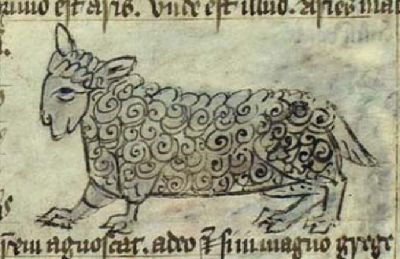 rimo est aris. vnde est illud. aries mac
rem agnoscat. adeo si in magno grege